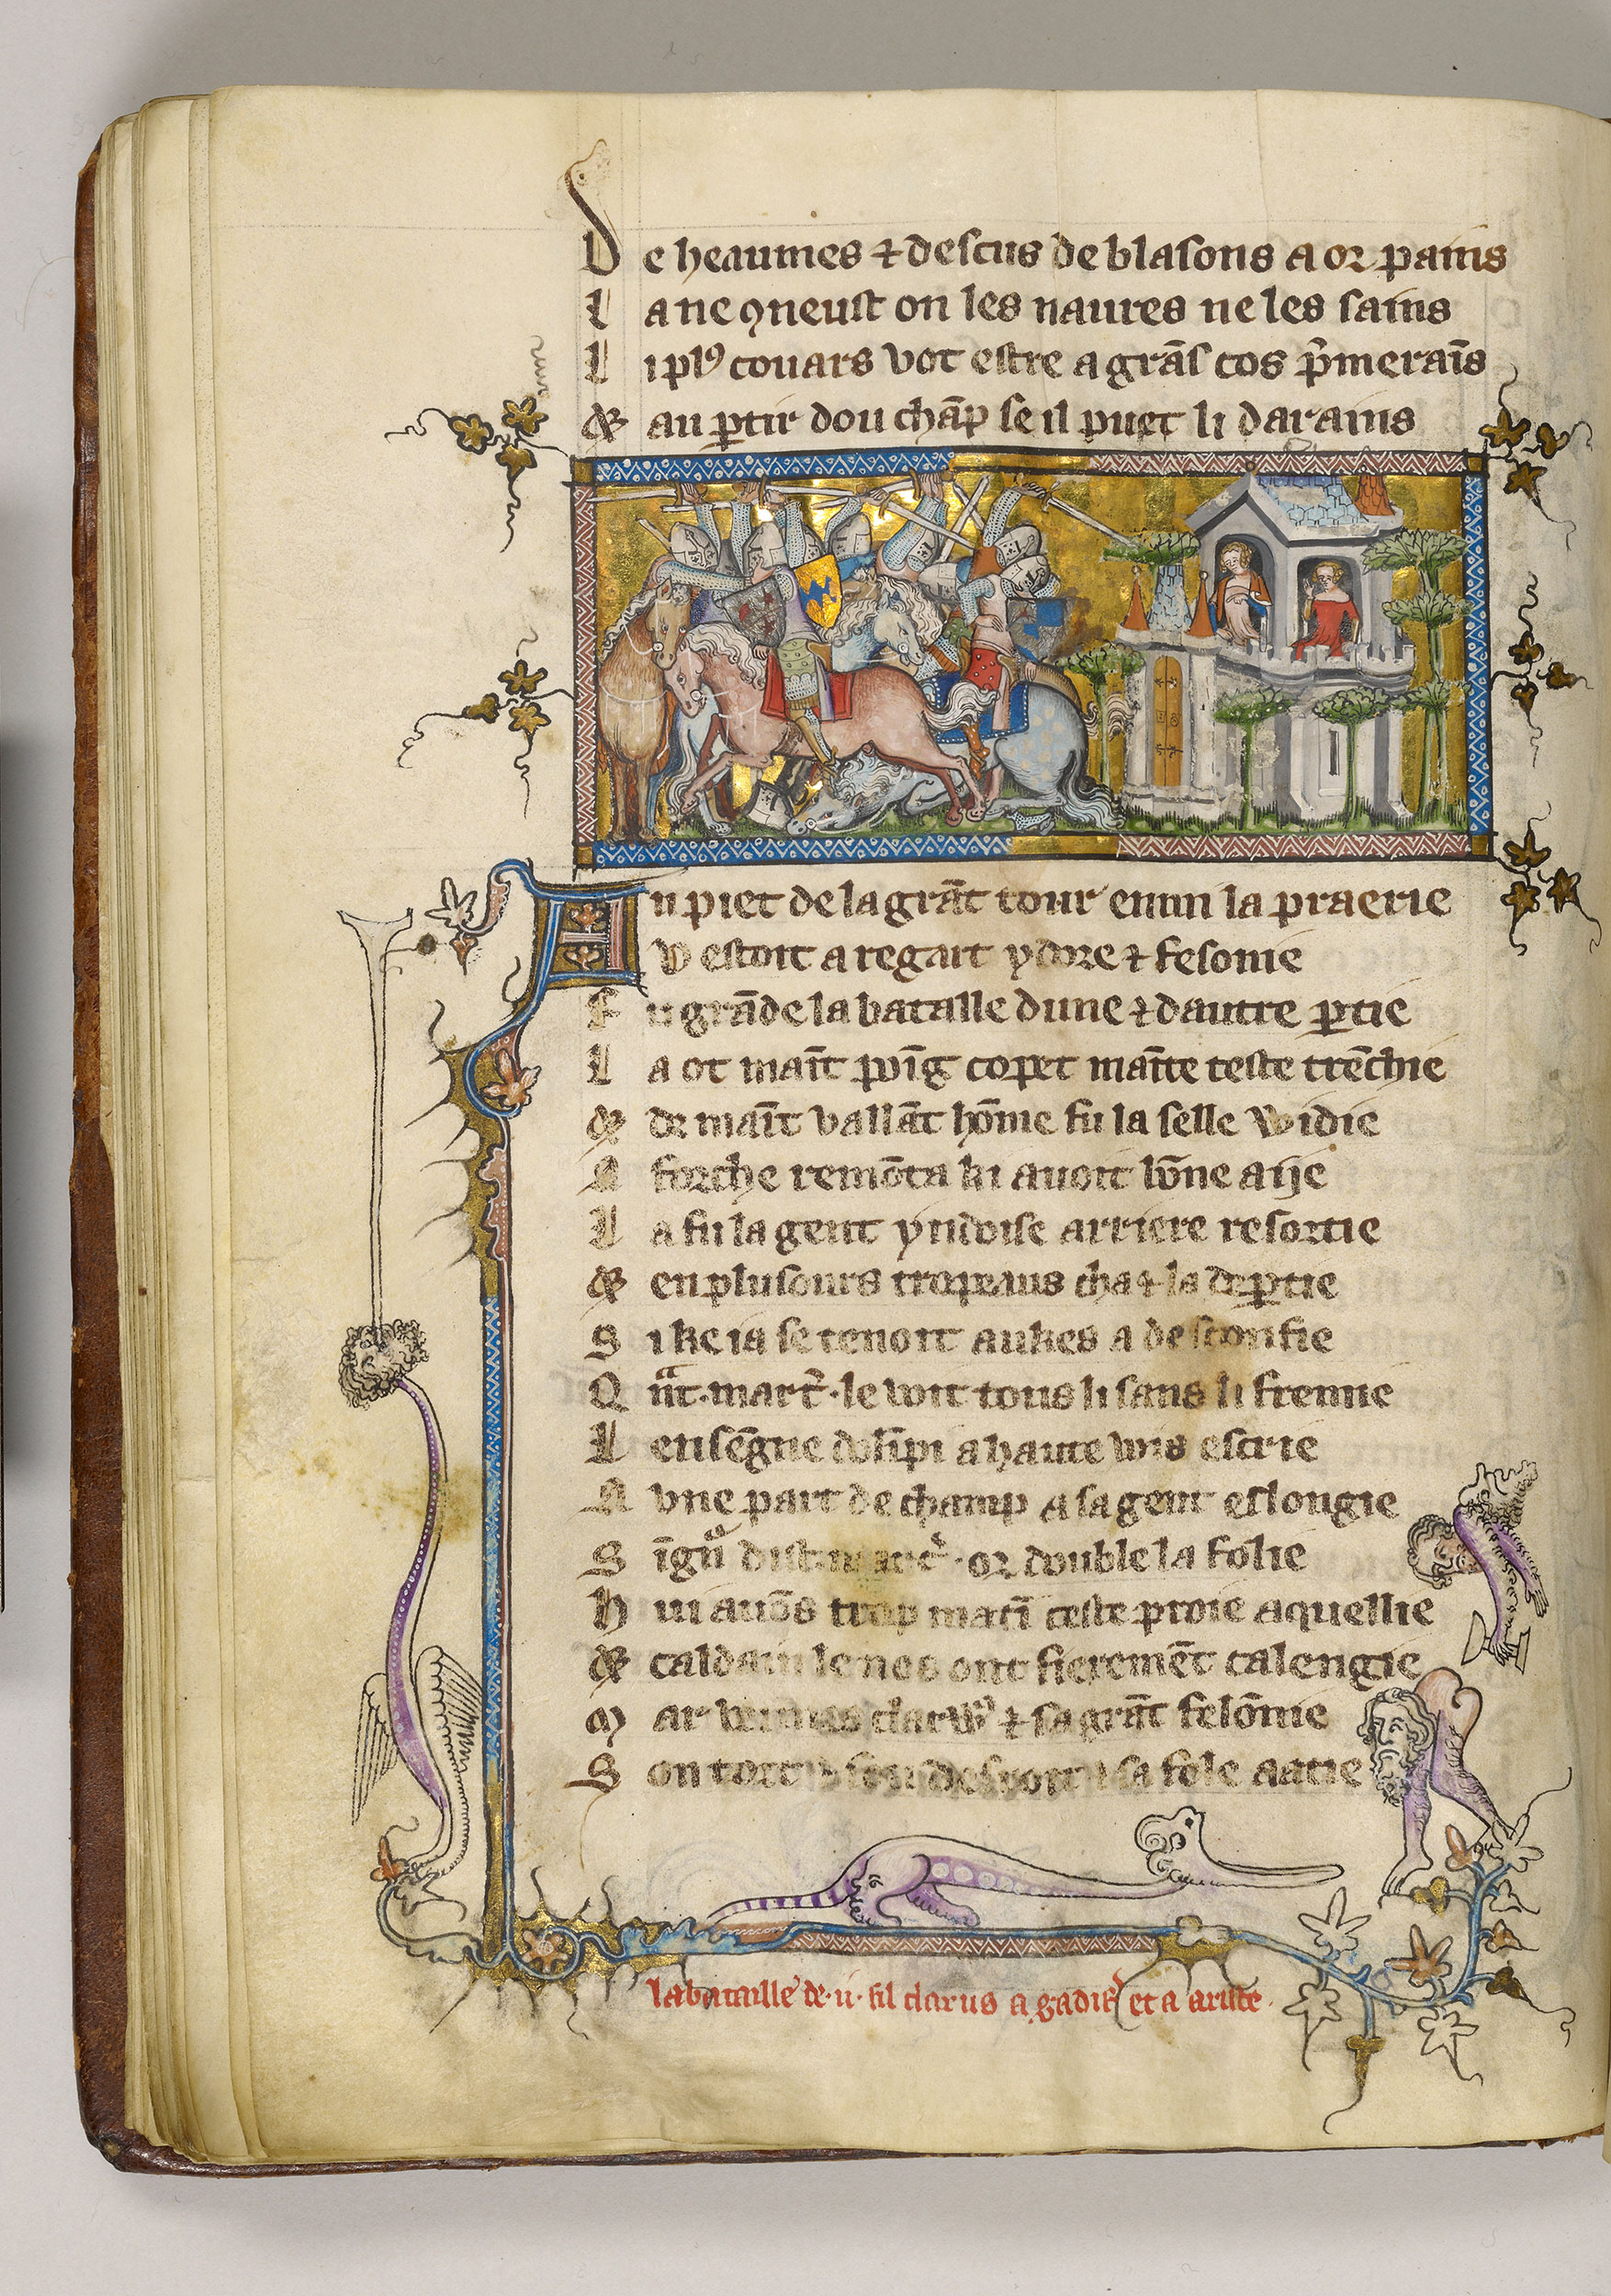 De heaumes ⁊ descus de blasons a or pains
La ne ꝯneust on les naures ne les sains
Li plꝰ couars vot estre a grãs cos p̃merai̅s
& au ꝑtir dou chãp se il puet li darains
Au piet de la grãt tour enmi la praerie
V estoit a regart ydore ⁊ fesonie
Fu grãde la batalle dune ⁊ dautre ꝑtie
La ot mai̅t poi̅g copet mai̅te teste trẽchie
& de mai̅t vallãt hõme fu la selle widie
A forche remõta ki auoit bõne aije
La fu la gent yndoise arriere resortie
& en plusours tropeaus cha ⁊ la deꝑtie
Si ke ia se tenoit aukes a desconfie
Qᵃnt·mart̃·le voit tous li sans li fremie
Lensẽgne dolĩpi a haute wis escrie
A vne part de champ a sa gent eslongie
Si̅gnᵘ dist mart̃·or double la folie
Hui auõs trop mati̅ ceste proie aquellie
& caldain le nos ont fieremẽt calengie
Mar ⁊ sa grãt felõnie
Son tort sa fole aatie
la bataille de·ii·fil clarus a gadif̃ et a ariste·